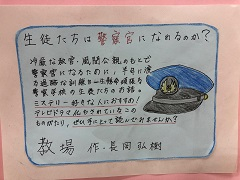 生徒たちは警察官になれるのか?
冷厳な教官・風間公親のもとで
警察官になるために、平日に凍
り過酷な訓練を一生懸命頑張る
警察学校の生徒たちのお話。
ミステリー好きな人におすすめ!
テレビドラマ化もされているこの
ものがたり、ぜひ手にとって読んでみませんか?
教場 作・長岡弘樹